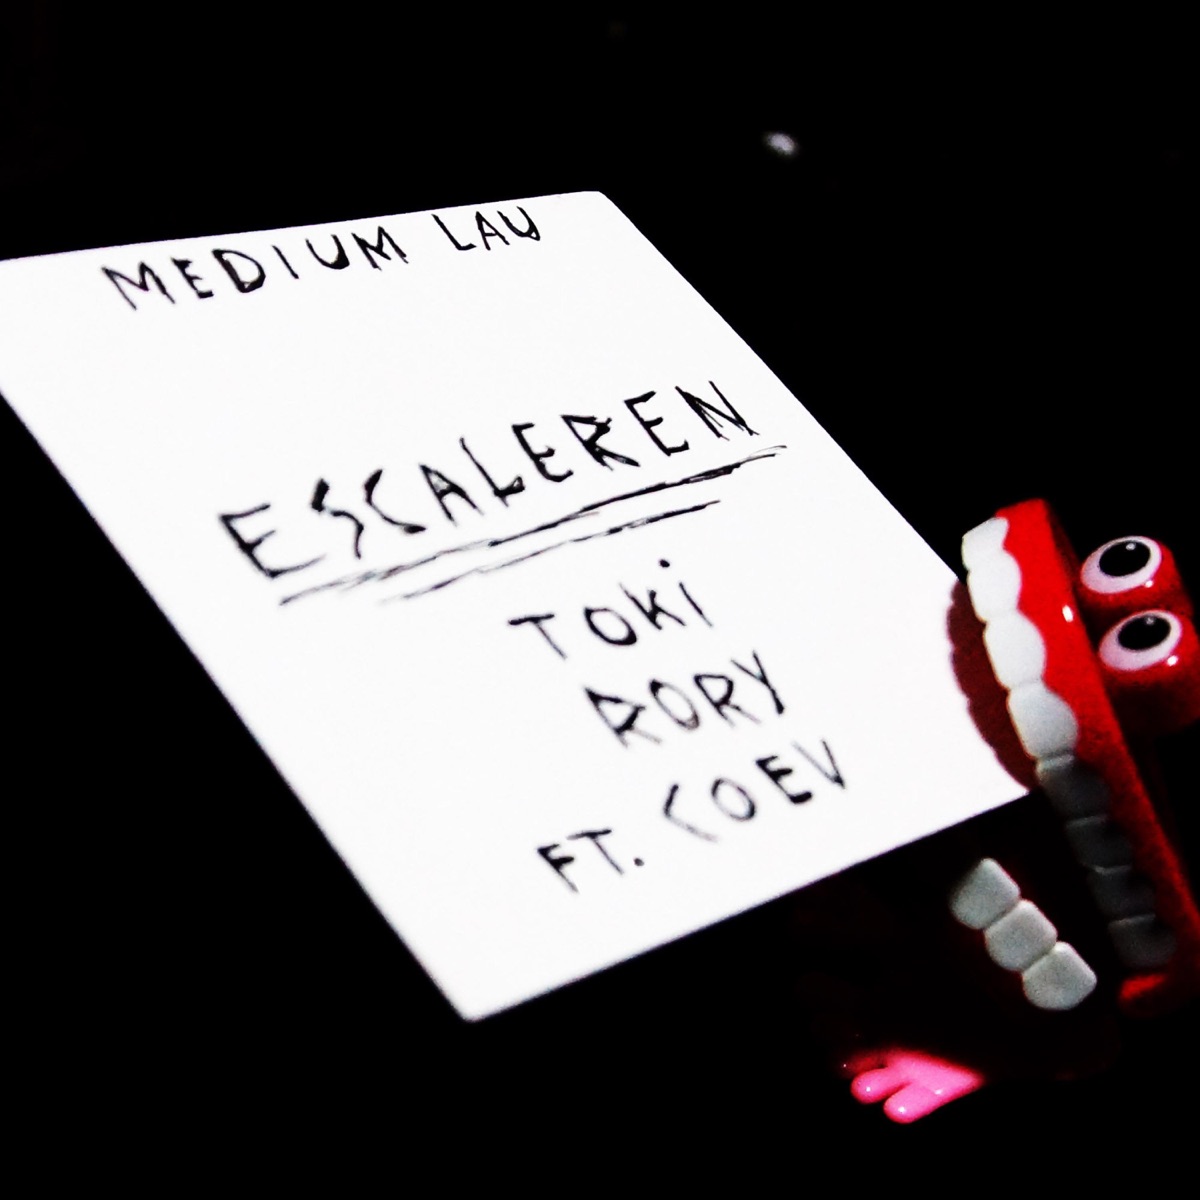 MEDIUM LAU
ESCALEREN
TOKi
RORY
FT. COEV